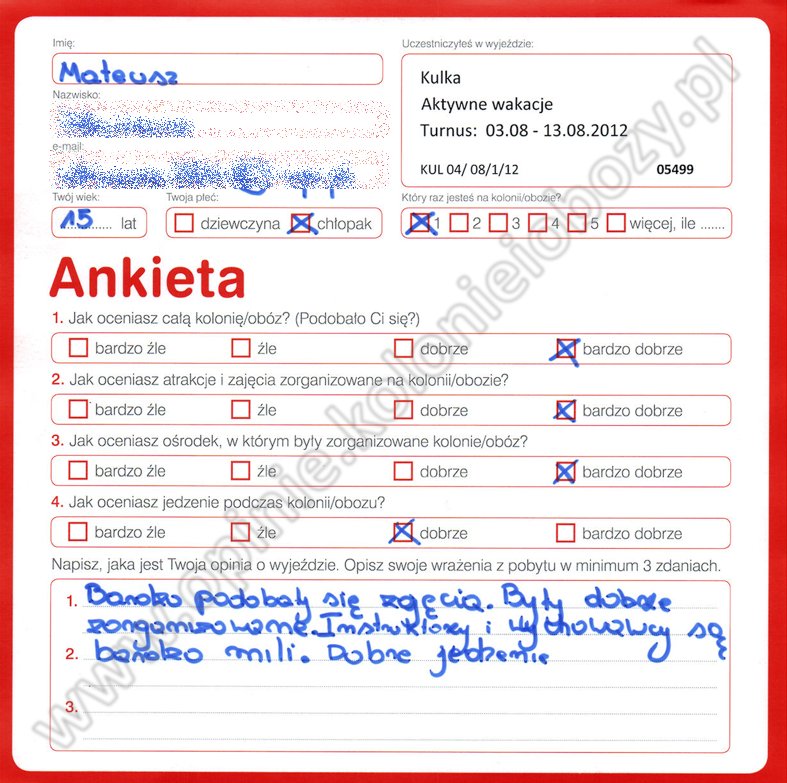 Imię:
Mateusz
Nazwisko:
e-mail:
Twój wiek:
15 lat
Twoja płeć:
dziewczyna chłopak
Uczestniczyłeś w wyjeździe:
Kulka
Aktywne wakacje
Turnus: 03.08 - 13.08.2012
KUL 04/ 08/1/12 05499
Który raz jesteś na kolonii/obozie?
1 2 3 4 5 więcej, ile .......
Ankieta
1. Jak oceniasz całą kolonię/obóz? (Podobało Ci się?)
bardzo źle źle dobrze bardzo dobrze
2. Jak oceniasz atrakcje i zajęcia zorganizowane na kolonii/obozie?
bardzo źle źle dobrze bardzo dobrze
3. Jak oceniasz ośrodek, w którym były zorganizowane kolonie/obóz?
bardzo źle źle dobrze bardzo dobrze
4. Jak oceniasz jedzenie podczas kolonii/obozu?
bardzo źle źle dobrze bardzo dobrze
Napisz, jaka jest Twoja opinia o wyjeździe. Opisz swoje wrażenia z pobytu w minimum 3 zdaniach.
1. Bardzo podobały się zajęcia. Były dobrze
zorganizowane. Instruktorzy i wychowawcy są
2. bardzo mili. Dobre jedzenie
3.
www.opinie.kolonieiobozy.pl